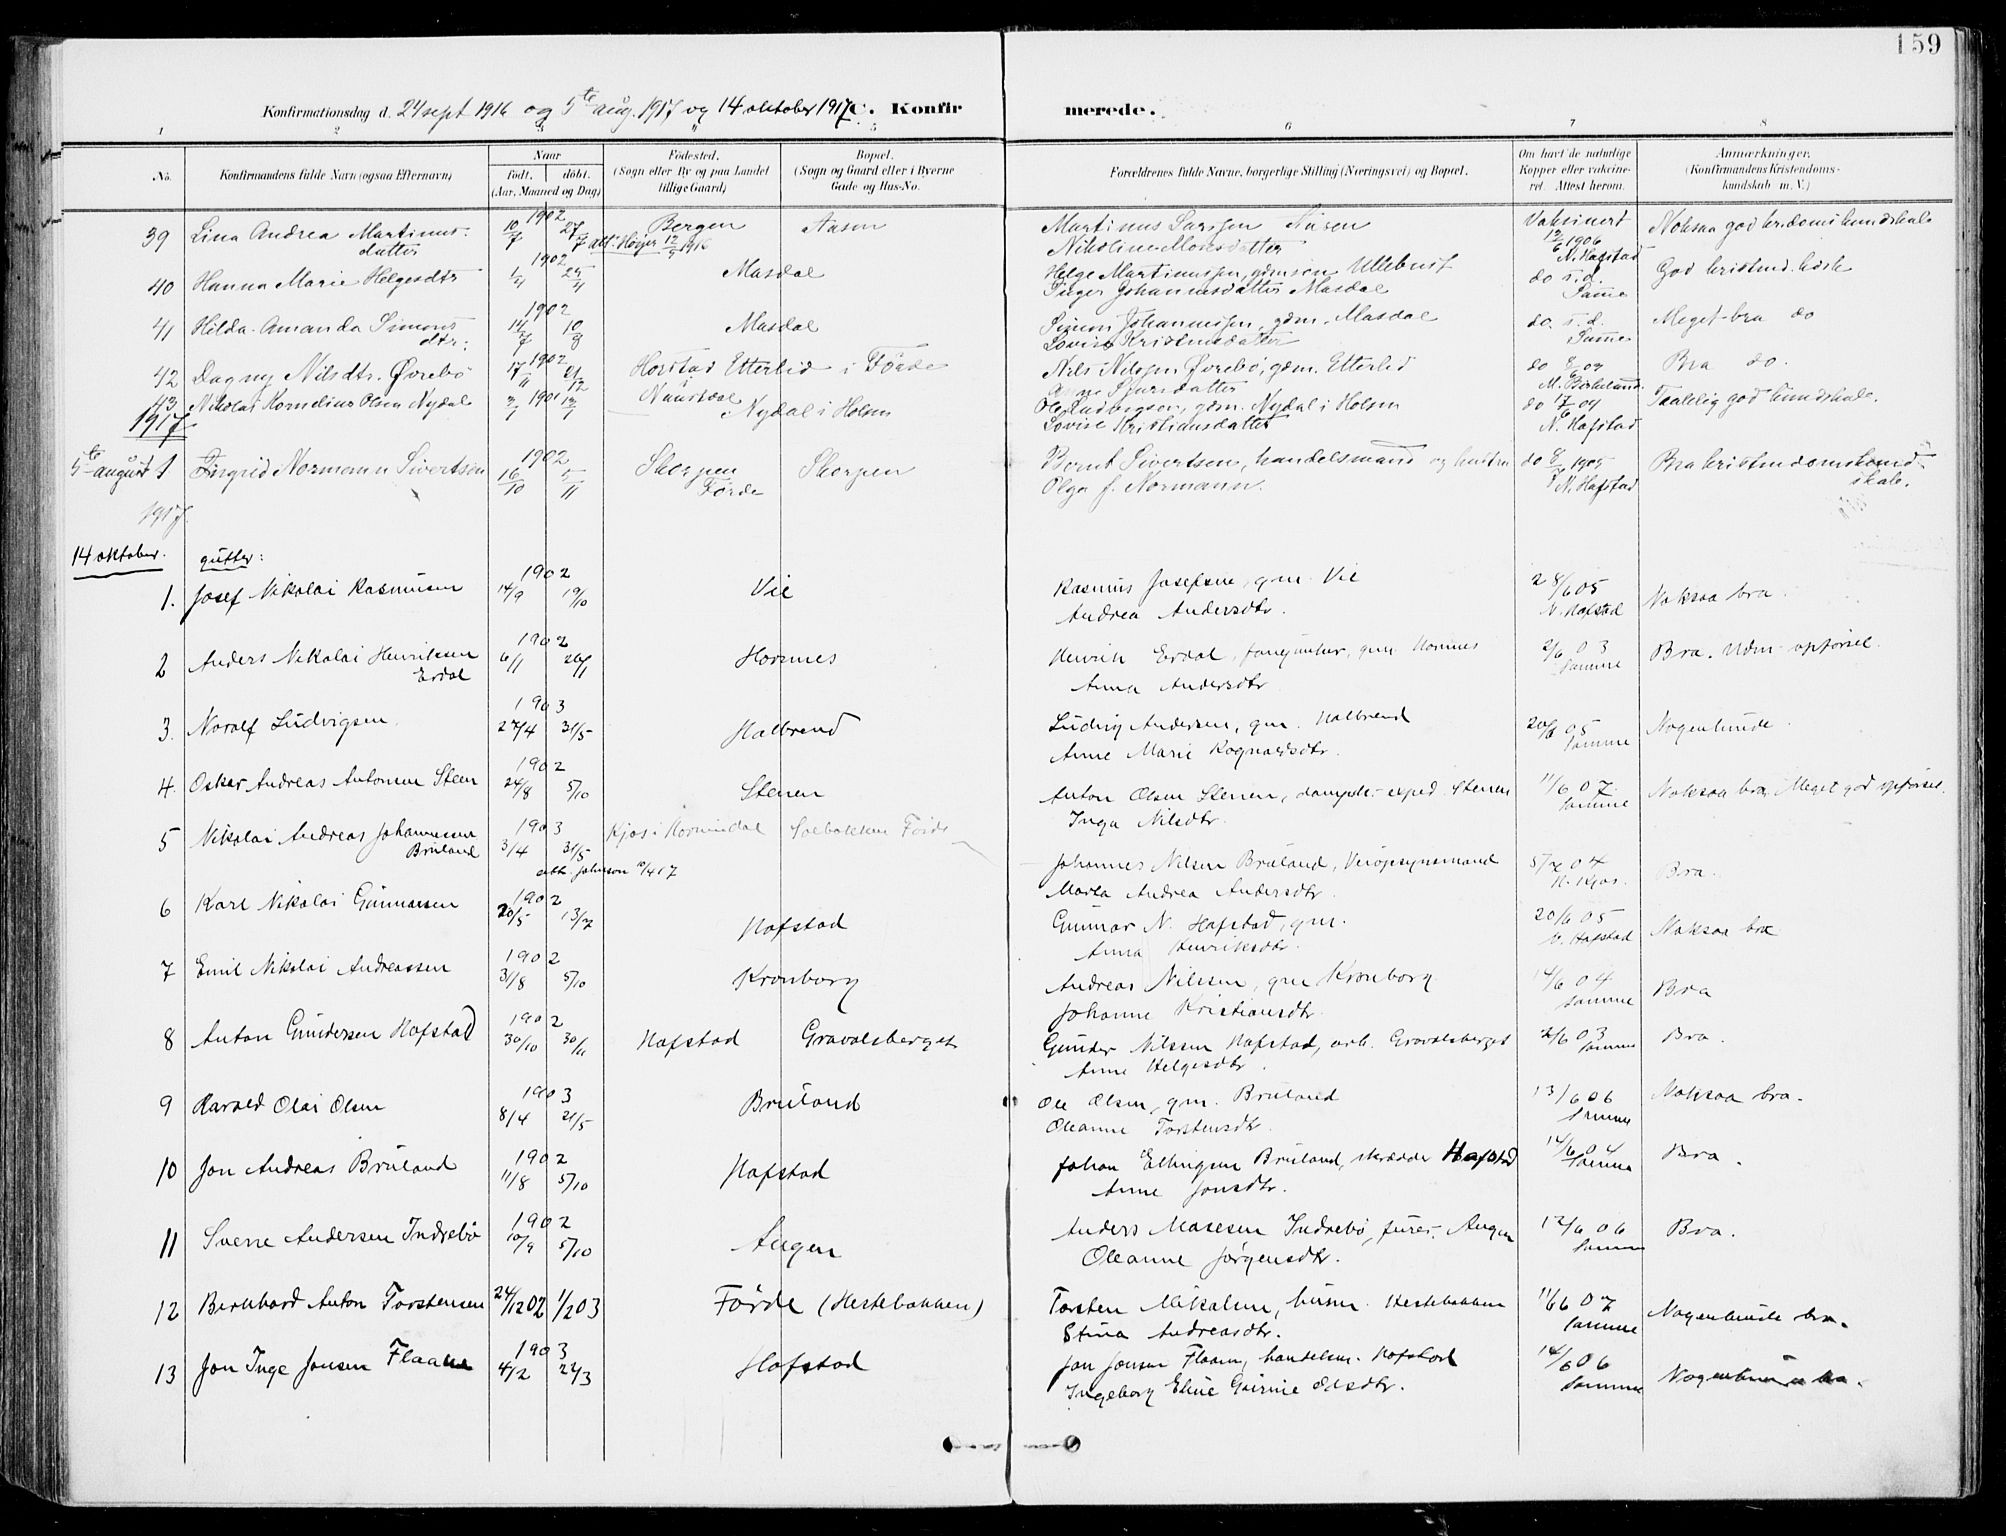 159
Konfirmationsdag d. 24 sept 1916 og 5te aug. 1917 og 14 oktober 1917 C. Konfirmerede.
1 2 3 4 5 6 7 8
No. Konfirmandens fulde Navn (ogsaa Efternavn) Naar født. døbt. (Aar, Maaned og Dag) Fødested. (Sogn eller By og paa Landet tillige Gaard) Bopæl. (Sogn og Gaard eller i Byerne Gade og Hus-No. Forældrenes fulde Navne, borgerlige Stilling (Næringsvei) og Bopæl. Om havt de naturlige Kopper eller vakcineret. Attest herom. Anmærkninger. (Konfirmandens Kristendomskundskab m. V.)
39 Lina Andrea Martinusdatter 1902 10/7 27/7 Bergen Aasen Martinus Larssen Aasen Vaksinert Noksaa god krdomskundskab
Nikoline Monsdatter 12/6 1906 N. Hafstad
40 Hanna Marie Helgesdtr 1902 Masdal Helge Martinussen, gdmsøn Ullebust do s.d. God kristnd. kdsk
Inger Johannesdatter Masdal Samme
41 Hilda Amanda Simonsdtr. 1902 14/7 10/8 Masdal Simon Johannessen, gdm. Masdal do. s. d. Meget bra do
Lovise Kristensdatter Samme
42 Dagny Nilsdtr. Øvrebø 1902 17/11 21/12 Horstad Etterlid i Førde Nils Nilssen Øvrebø, gdm. Etterlid do 8/6 09 Bra do.
i Naustdal M. Birkeland
43 Nikolai Kornelius Olsen Nydal 1901 Nydal i Holsen Ole Ludvigsen, gdm. Nydal i Holsen do 17/6 09 Taalelig god kundskab.
1917 Lovise Kristiansdatter N. Hafstad
5te august 1 Ingrid Normann Sivertsen 1902 16/10 5/11 Skorpen Førde Skorpen Bernt Sivertsen, handelsmand og hustru do 8/7 1905 Bra kristendomskundskab.
Olga f. Normann. N. Hafstad
1917.
14 oktober. gutter:
1. Josef Nikolai Rasmusen 1902 14/9 19/10 Vie Rasmus Josefsen, gm. Vie 28/6 05 Noksaa bra.
Andrea Andersdtr. N. Hafstad
2 Anders Nikolai Henriksen Erdal 1902 6/11 26/11 Hornnes Henrik Erdal, gm. Hornnes 2/6 03 Bra. Udm. opførsel.
Anna Andersdtr Samme
3. Noralf Ludvigsen. 1903 27/4 31/5 Halbrend Ludvig Andersen, gm. Halbrend 20/6 05 Nogenlunde.
Anne Marie Rognaldsdtr. Samme
4. Oskar Andreas Antonsen Steen 1902 24/8 5/10 Stenen Anton Olsen Stenen, dampsk.-exped. Stenen 11/6 07. Noksaa bra. Meget god opførsel.
Inga Nilsdtr. Samme
5 Nikolai Andreas Johannesen Bruland 1903 3/4 31/5 Kjøs i Hornindal Solbakken Førde Johannes Nilsen Bruland, Veiopsynsmand 5/7 04 Bra.
Marta Andrea Andersdtr. N. Kjøs.
6 Karl Nikolai Gunnarsen 1902 20/5 13/7 Hafstad Gunnar N. Hafstad, gm. 20/6 05 Noksaa bra
Anna Henriksdtr. N. Hafstad
7 Emil Nikolai Andreassen 1902 31/8 5/10 Kronborg Andreas Nilssen, gm Kronborg 14/6 04 Bra
Johanne Kristiansdtr. Samme
8 Anton Gundersen Hafstad 1902 30/10 30/11 Hafstad Gravalsberget Gunder Nilssen Hafstad, arb. Gravalsberget 2/6 03 Bra.
Anne Helgesdtr. Samme
9 Harald Olai Olsen 1903 8/4 21/5 Bruland Ole Olsen, gm. Bruland 13/6 06 Noksaa bra.
Oleanne Torstensdtr. Samme
10 Jon Andreas Bruland 1902 11/8 5/10 Hafstad Johan Ellingsen Bruland, skrædder Hafstad 14/6 04 Bra.
Anne Jonsdtr. Samme
11 Sverre Andersen Indrebø 1902 10/9 5/10 Angen Anders Mosesen Indrebø, furer, Angen 12/6 06 Bra.
Oleanne Jørgensdtr. Samme
12 Bernhard Anton Torstensen 24/12 02 1/2 03 Førde (Hestebakken) Torsten Mikalsen, husm. Hestebakken 11/6 07 Nogenlunde bra.
Stina Andreasdtr. Samme
13 Jon Inge Jonsen Flaam 1903 4/2 22/3 Hafstad Jon Jonsen Flaam, handelsm. Hafstad 14/6 06 Nogenlunde bra.
Ingeborg Eline Gurine Samme